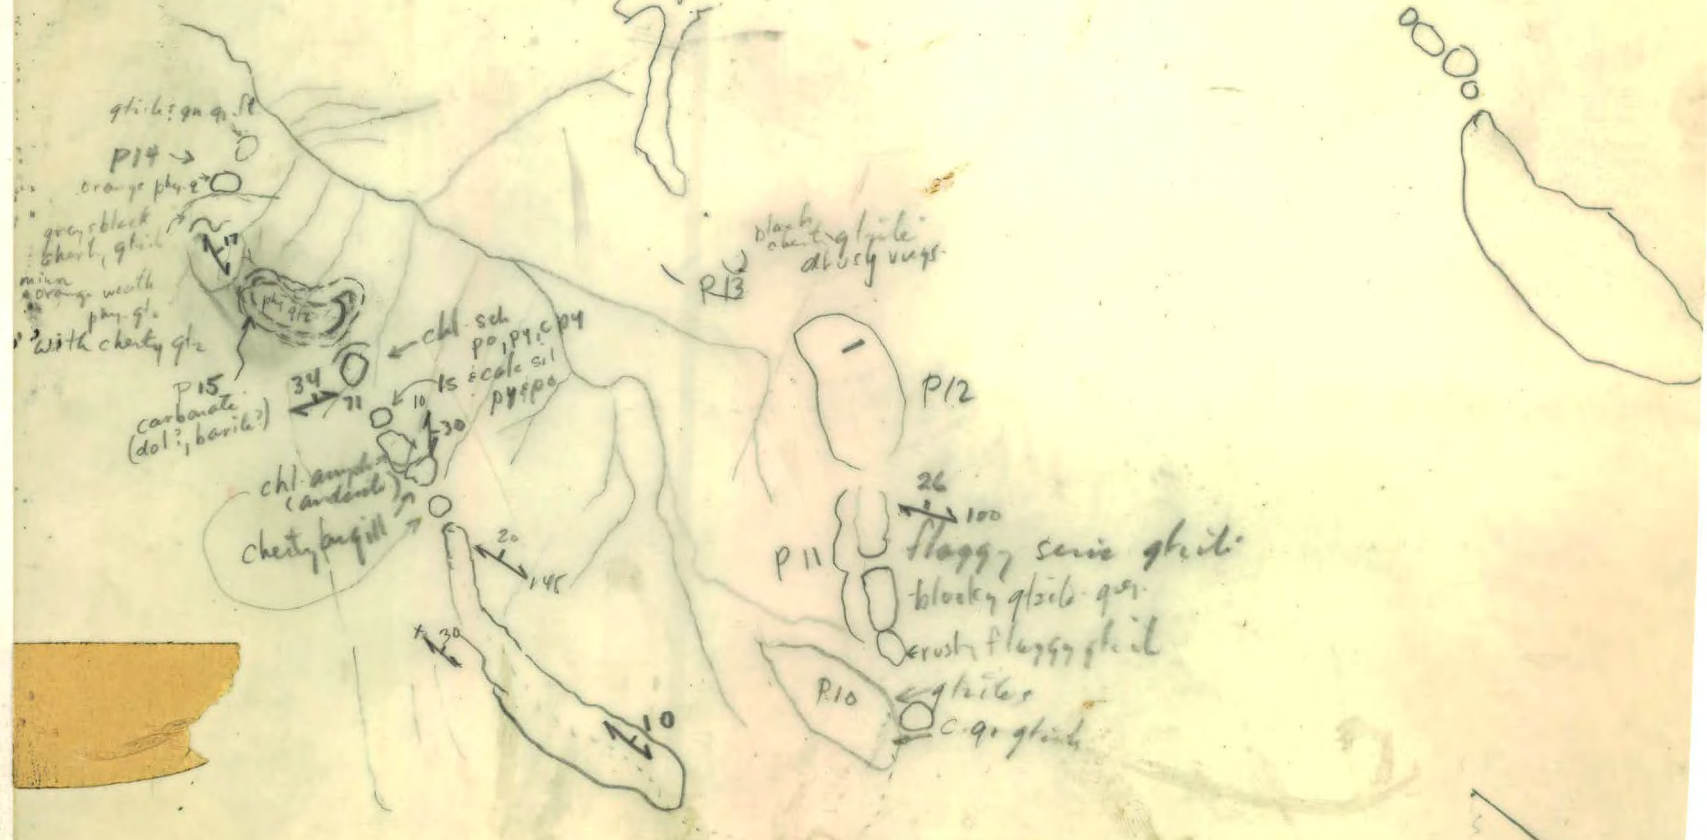 P14
orange phy. q
grey & black
chert, qtzite
minor
orange weath
phy. qtz
with cherty qtz
17
phy qtz
P15
carbonate
(dol?, barite?)
34
71
chl. sch
po, py, cpy
ls & calc sil
py & po
10
30
chl. amph
(andesite)
cherty argill
20
145
30
10
P13
black
chert, qtzite
drusy vugs.
P12
26
100
P11
flaggy seric qtzite
blocky qtzite
rusty flaggy qtzite
P10
qtzites
c. gr qtzite